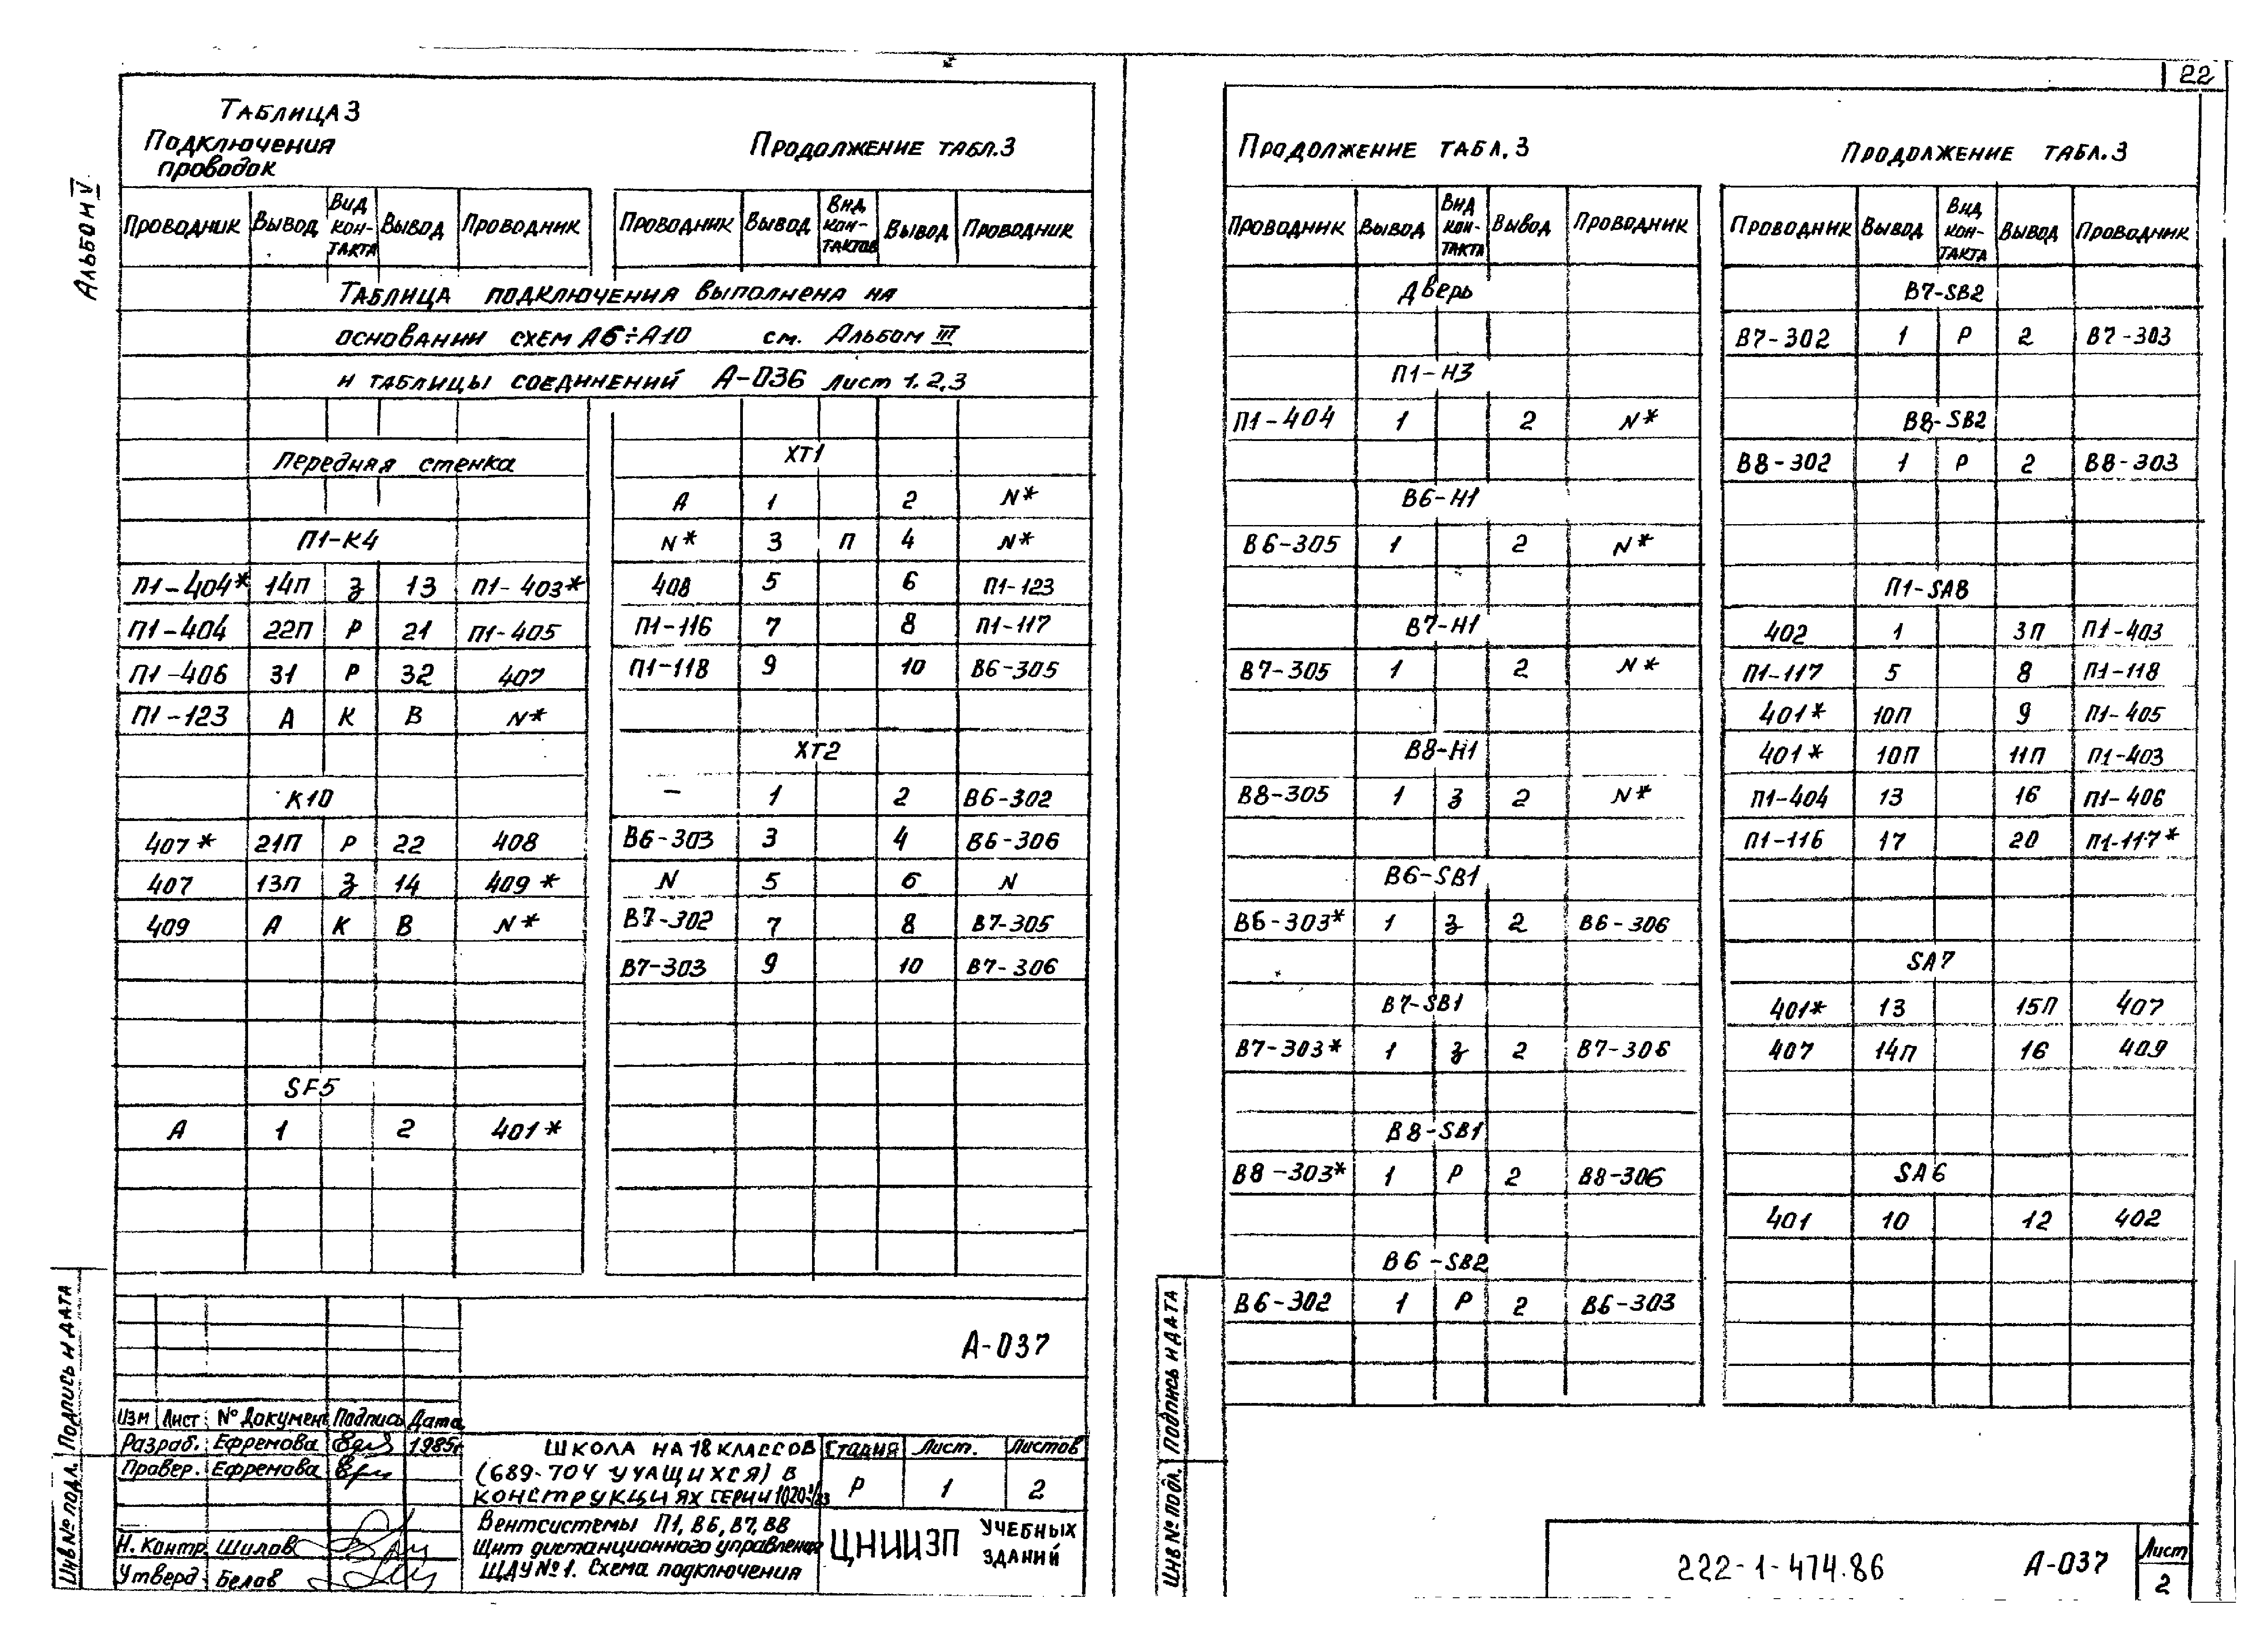 22
Альбом V
Таблица 3
Подключения
проводок
Проводник Вывод Вид кон-такта Вывод Проводник
Таблица подключения выполнена на
основании схем А6÷А10 см. Альбом III
и таблицы соединений А-036 лист 1.2,3
Передняя стенка
П1-К4
П1-404* 14П З 13 П1-403*
П1-404 22П Р 21 П1-405
П1-406 31 Р 32 407
П1-123 А К В N*
К10
407* 21П Р 22 408
407 13П З 14 409*
409 А К В N*
SF5
А 1 2 401*
Продолжение табл.3
Проводник Вывод Вид кон-тактов Вывод Проводник
ХТ1
А 1 2 N*
N* 3 П 4 N*
408 5 6 П1-123
П1-116 7 8 П1-117
П1-118 9 10 В6-305
ХТ2
— 1 2 В6-302
В6-303 3 4 В6-306
N 5 6 N
В7-302 7 8 В7-305
В7-303 9 10 В7-306
А-037
Изм Лист № Документ Подпись Дата
Разраб. Ефремова 1985г
Провер. Ефремова
Н. Контр. Шилов
Утверд. Белов
Школа на 18 классов
(689-704 учащихся) в
конструкциях серии 1.020-1/83
Вентсистемы П1, В6, В7, В8
Щит дистанционного управления
ЩДУ№1. Схема подключения
Стадия Лист. Листов
Р 1 2
ЦНИИЭП учебных
зданий
Инв № подл. Подпись и дата
Продолжение табл.3
Проводник Вывод Вид кон-такта Вывод Проводник
Дверь
П1-Н3
П1-404 1 2 N*
В6-Н1
В6-305 1 2 N*
В7-Н1
В7-305 1 2 N*
В8-Н1
В8-305 1 З 2 N*
В6-SB1
В6-303* 1 З 2 В6-306
В7-SB1
В7-303* 1 З 2 В7-306
В8-SB1
В8-303* 1 Р 2 В8-306
В6-SB2
В6-302 1 Р 2 В6-303
Продолжение табл.3
Проводник Вывод Вид кон-такта Вывод Проводник
В7-SB2
В7-302 1 Р 2 В7-303
В8-SB2
В8-302 1 Р 2 В8-303
П1-SA8
402 1 3П П1-403
П1-117 5 8 П1-118
401* 10П 9 П1-405
401* 10П 11П П1-403
П1-404 13 16 П1-406
П1-116 17 20 П1-117*
SA7
401* 13 15П 407
407 14П 16 409
SA6
401 10 12 402
Инв № подл. Подпись и дата
222-1-474.86 А-037 Лист
2